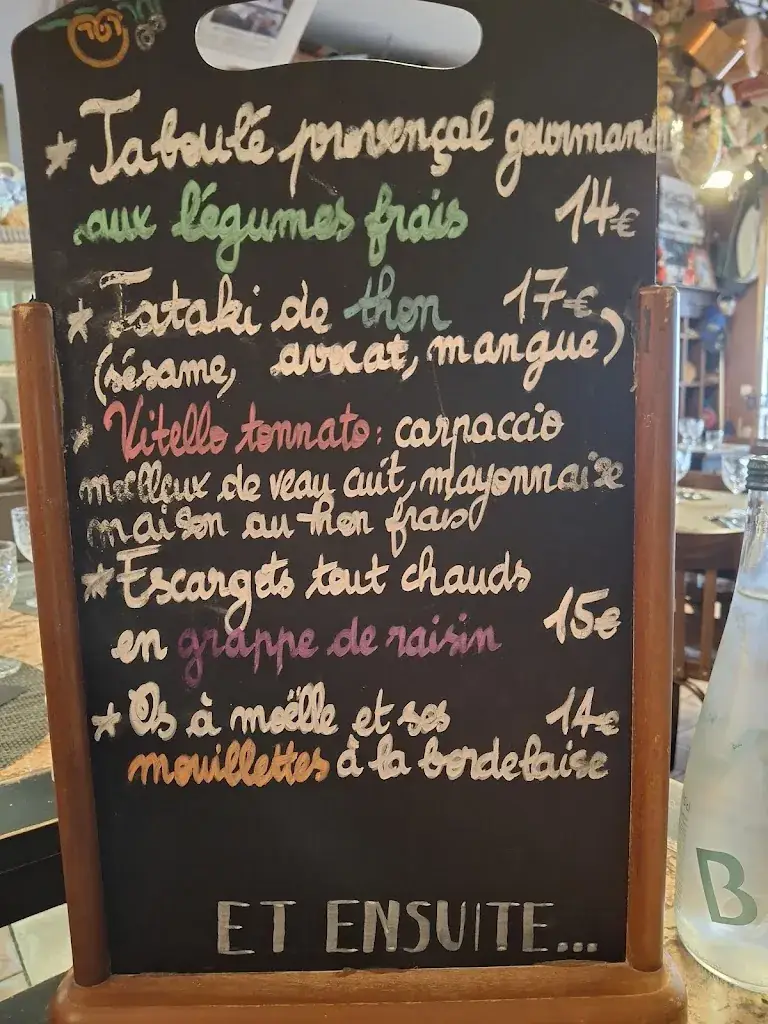 * Taboulé provençal gourmand
aux légumes frais 14€
* Tataki de thon 17€
(sésame, avocat, mangue)
* Vitello tonnato: carpaccio
moelleux de veau cuit, mayonnaise
maison au thon frais
* Escargots tout chauds
en grappe de raisin 15€
* Os à moëlle et ses 14€
mouillettes à la bordelaise
ET ENSUITE...
B